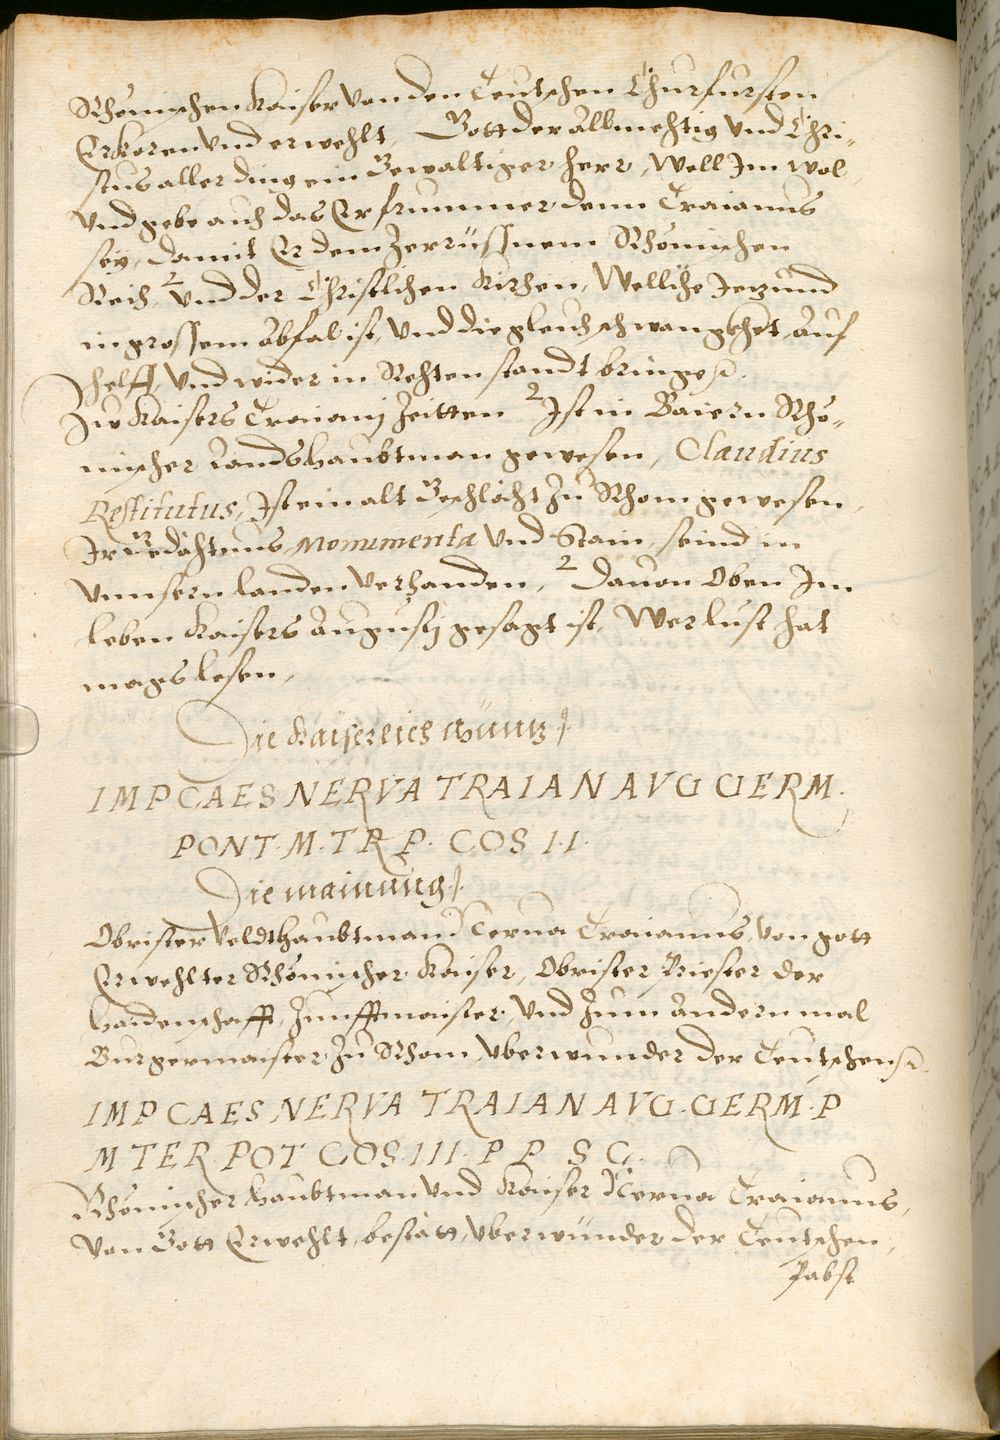 Rhömischen Kaiser von den Teutschen Churfursten
Erkoren und erwehlt, Gott der Allmehtig und Chri-
stus aller ding ein Gewaltiger herr, Well Im wol
und gebe auch das Er frummer denn Traianus
seÿ, damit Er dem Zerrüssnem Rhömischen
Reich, und der Christlchen Kirchen, Wellche Jezund
in grossem abfal ist, und die gleuch schwangkhet, auf
helff, und wider in Rehten standt bringe.
Zu Kaisers Traianj Zeitten Ist in Baiern Rhö-
mischer Landshaubtman gewesen, Claudius
Restitutus, Ist ein alt Geschlächt zu Rhom gewesen,
Ir Gedähtnus Monumenta und Stain, seind in
unnsern landen verhanden, dauon Oben Im
leben Kaisers Augustj gesagt ist, Wer lust hat
mags lesen,
Die Kaiserlich Müntz
IMP CAES NERVA TRAIAN AVG GERM.
PONT. M. TR P. COS I.I.
Die mainung
Obrister Veldthaubtmand Nerua Traianus, von gott
Erwehlter Rhömischer Kaiser, Obrister Priester der
haidenschafft, Zunfftmaister, und Zum Andern mal
Burgermaister Zu Rhom, uberwunder der Teutschen
IMP CAES NERVA TRAIAN AVG. GERM. P
M TER. POT COS. III. P P S C.
Rhömischer haubtman und Kaiser Nerua Traianus,
Von Gott Erwehlt, bestätt, uberwünder der Teutschen,
Pabst